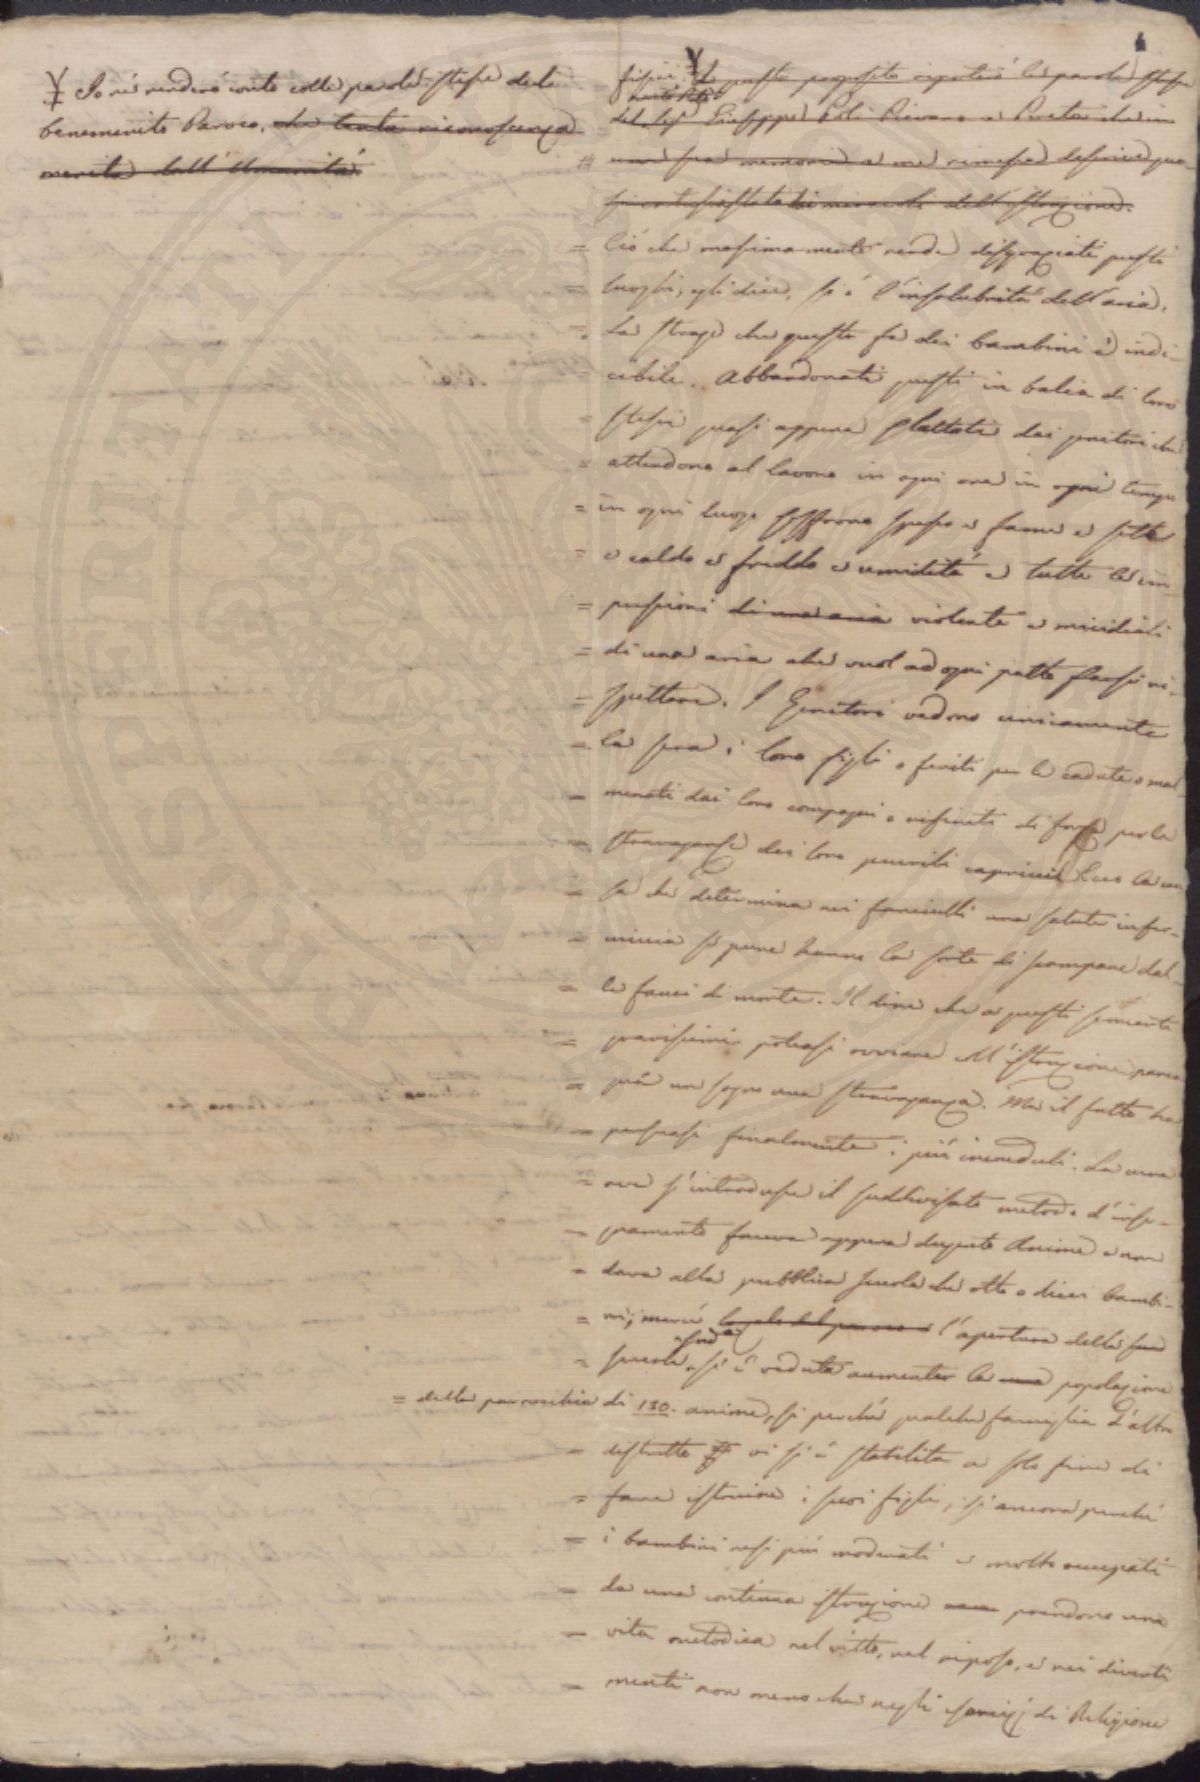 Io ne renderò conto colle parole stesse del
benemerito Paroco, che tanta riconoscenza
merita dall'Umanità.
fisici. A questo proposito riporterò le parole stesse
del Giuseppe Poli Pievano a che in
una sua memoria a me rimessa descrive
dell'istruzione.
= Ciò che massimamente rende disgraziati questi
= luoghi, egli dice, si è l'insalubrità dell'aria.
= La strage che questa fa dei bambini è indi-
= cibile. Abbandonati questi in balia di loro
= stessi quasi appena slattati dai genitori che
= attendono al lavoro in ogni ora in ogni tempo
= in ogni luogo soffrono spesso e fame e sete
= e caldo e freddo e umidità e tutte le im-
= pressioni di una aria violente e micidiali
= di una aria che vuol ad ogni patto farsi ri-
= spettare. I Genitori vedono unicamente
= la sera i loro figli o feriti per le cadute o mal
= menati dai loro compagni o rifiniti di forze per le
= stravaganze dei loro puerili capricci. Ecco la cau
= sa che determina nei fanciulli una salute infer-
= miccia se pure hanno la sorte di scampare dal-
= le fauci di morte. Il dire che a questi sconcerti
= gravissimi poteasi ovviare coll'istruzione parea
= già un sogno una stravaganza. Ma il fatto ha
= persuasi finalmente i più increduli. La cura
= ove s'introdusse il suddivisato metodo d'inse-
= gnamento faceva appena dugento Anime e non
= dava alla pubblica scuola che otto o dieci bambi-
= ni; mercè lo zelo del paroco e l'apertura della sud
= scuola, si è veduta aumentar la popolazione
= della parrocchia di 130. anime, sì perchè qualche famiglia d'altro
= distretto vi si è stabilita a solo fine di
= fare istruire i suoi figli, sì ancora perchè
= i bambini resi più moderati e molto occupati
= da una continua istruzione prendono una
= vita metodica nel vitto, nel riposo, e nei diverti
= menti non meno che negli esercizj di Religione